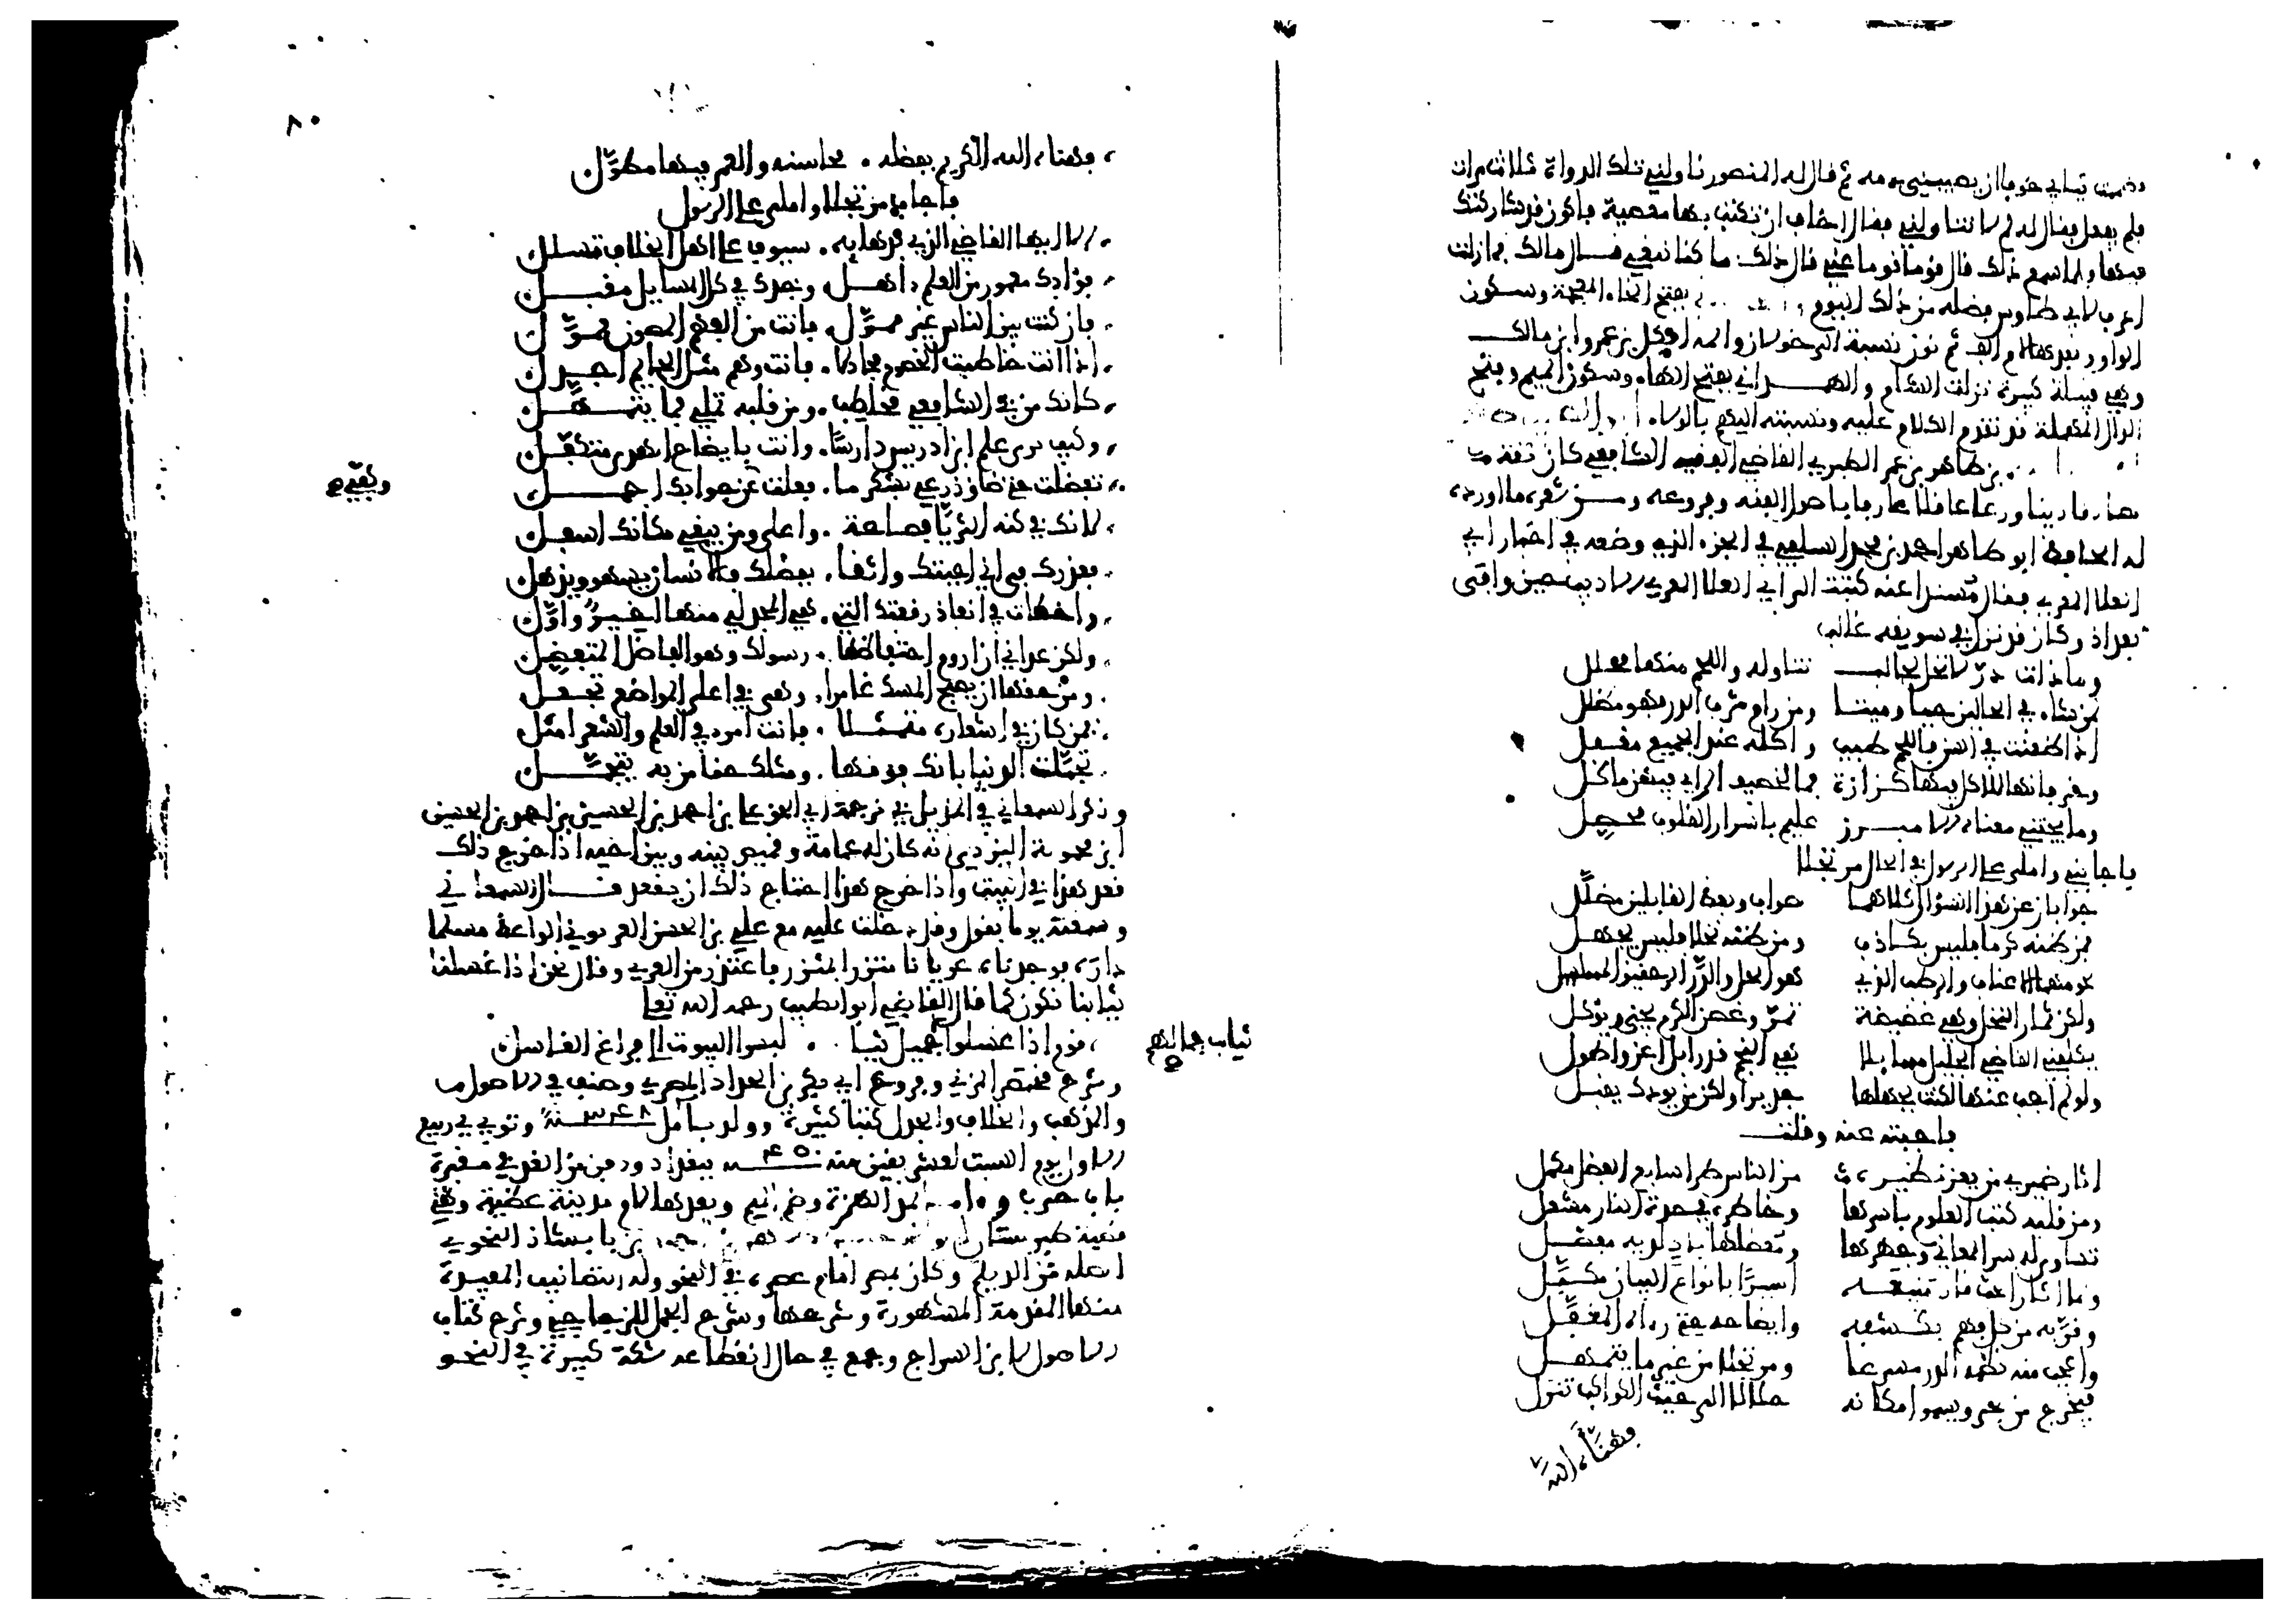 وضممت ثيابي خوفا ان يصيبني دمه ثم قال له المنصور ناولني تلك الدواة ثلاث مرات
فلم يفعل فقال له لم لا تناولني فقال اخاف ان تكتب بها معصية فاكون قد شاركتك
فيها فلما سمع ذلك قال قوما عني قال ذلك ما كنا نبغي قال مالك فما زلت
اعرف لابن طاوس فضله من ذلك اليوم بفتح الخاء المعجمة وسكون
الواو وبعدها لام الف ثم نون نسبة الى خولان واسمه افكل بن عمرو بن مالك
وهي قبيلة كبيرة نزلت الشام والهمداني بفتح الهاء وسكون الميم وفتح
الدال المهملة قد تقدم الكلام عليه ونسبته اليهم بالولاء
بن طاهر بن عمر الطبري القاضي الفقيه الشافعي كان ثقة
صادقا دينا ورعا عاقلا عارفا باصول الفقه وفروعه ومن شعره ما اورده
له الحافظ ابو طاهر احمد بن محمد السلفي في الجزء الذي وضعه في اخبار ابي
العلا المعري فقال مسندا عنه كتبت الى ابي العلا المعري الاديب حين وافى
بغداذ وكان قد نزل في سويقة غالب
وما ذات در لا تحل لحالب تناوله واللحم منها محلل
لمن شاء في الحالين حيا وميتا ومن رام شرب الدر فهو مضلل
اذا طعنت في السن فاللحم طيب واكله عند الجميع مغفل
وخرفانها للاكل فيها كزازة فما لحصيد الراي فيهن ماكل
وما يجتني معناه الا مبرز عليم باسرار القلوب محصل
فاجابني واملى على الرسول في الحال مرتجلا
جوابان عن هذا السؤال كلاهما صواب وبعض القايلين مضلل
فمن ظنه كرما فليس بكاذب ومن ظنه نخلا فليس يجهل
لحومهما الاعناب والرطب الذي هو الحل والدر الرحيق المسلسل
ولكن ثمار النخل وهي غضيضة تمر وغض الكرم يجنى ويوكل
يكلفني القاضي الجليل مسايلا هي النجم قدرا بل اعز واطول
ولو لم اجب عنها لكنت بجهلها جديرا ولكن من يودك يقبل
فاجبته عنه وقلت
اثار ضميري من يعز نظيره من الناس طرا سابغ الفضل مكمل
ومن قلبه كتب العلوم باسرها وخاطره في حدة النار مشعل
تساوى له سر المعاني وجهرها ومعضلها باد لديه مفصل
ولما اثار الخب قاد منيعه اسيرا بانواع البيان مكبل
وقربه من كل فهم بكشفه وايضاحه حتى رآه المغفل
واعجب منه نظمه الدر مسرعا ومرتجلا من غير ما يتمهل
فيخرج من بحر ويسمو مكانه جلالا الى حيث الكواكب تنزل
فهناه الله
٨٠
فهناه الله الكريم بفضله محاسنه والعمر فيها مطول
فاجاب مرتجلا واملى على الرسول
الا ايها القاضي الذي بدهايه سيوف على اهل الخلاف تسلل
فؤادك معمور من العلم اهل وجدك في كل المسايل مقبل
فان كنت بين الناس غير ممول فانت من الفهم المصون ممول
اذا انت خاطبت الخصوم مجادلا فانت وهم مثل الحمايم اجدل
كانك من في الشافعي مخاطب ومن قلبه تملي فما يتمهل
وكيف يرى علم ابن ادريس دارسا وانت بايضاح الهدى متكفل
تفضلت حتى ضاق ذرعي بشكر ما فعلت عن جوابك اجمل
وكفي ص
لانك في كنه الثريا فصاحة واعلى ومن يبغي مكانك اسفل
فعذرك في اني اجبتك واثقا بفضلك فالانسان يسهو ويذهل
واخطات في انفاذ رقعتك التي هي المجد لي منها اخير واول
ولكن عداني ان اروم احتفاظها رسولك وهو الفاضل المتفضل
ومن حقها ان يصبح المسك غامرا وهي في اعلى المواضع تجعل
فمن كان في اشعاره متمثلا فانت امرؤ في العلم والشعر امثل
تجملت الدنيا بانك فوقها ومثلك حقا من به يتجمل
وذكر السمعاني في الذيل في ترجمة ابي الحق علي بن احمد بن الحسين بن احمد بن الحسين
ابن محموية اليزدي انه كان له عمامة وقميص بينه وبين اخيه اذا خرج ذلك
قعد هذا في البيت واذا خرج هذا احتاج ذلك ان يقعد قال السمعاني
وسمعته يوما يقول وقد دخلت عليه مع علي بن الحسن الغزنوي الواعظ مسلما
داره فوجدناه عريانا متزرا بمئزر فاعتذر من العري وقال نحن اذا غسلنا
ثيابنا نكون كما قال القاضي ابو الطيب رحمه الله تعا
قوم اذا غسلوا جميل ثياب لبسوا البيوت الى فراغ الغاسل
ثياب جمالهم صح
وشرح مختصر المزني وفروع ابي بكر بن الحداد المصري وصنف في الاصول
والمذهب والخلاف والجدل كتبا كثيرة وولد بآمل ٣٤٨ سنة وتوفي في ربيع
الاول يوم السبت لعشر بقين منه سنة ٤٥٠ ببغداد ودفن من الغد في مقبرة
باب حرب وآمل بمد الهمزة وضم الميم وبعدها لام مدينة عظيمة وهي
قصبة طبرستان بن بابشاذ النحوي
اصله من الديلم وكان بمصر امام عصره في النحو وله التصانيف المفيدة
منها المقدمة المشهورة وشرحها وشرح الجمل للزجاجي وشرح كتاب
الاصول لابن السراج وجمع في حال انقطاعه شكة كبيرة في النحو